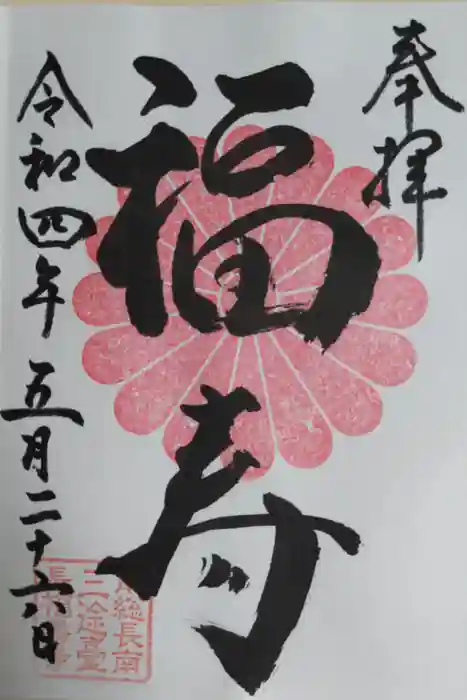 奉拝
福寿
令和四年五月二十六日